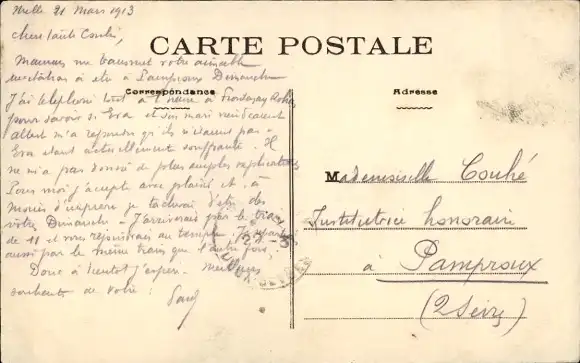 Melle 21 Mars 1913
CARTE POSTALE
Correspondance
Adresse
Maman me transmet votre aimable
invitation à être à Pamproux Dimanche
J'ai téléphoné tout à l'heure à
pour savoir si Eva et son mari viendraient
Albert m'a répondu qu'ils n'étaient pas
Eva étant actuellement souffrante. Il
ne m'a pas donné de plus amples explications
Pour moi j'accepte avec plaisir et à
moins d'imprévu je tâcherai d'être des
vôtres Dimanche. J'arriverais par le train
de 11 et vous rejoindrai au temple. Je
aussi par le même train que l'autre fois.
Donc à bientôt j'espère. Meilleurs
souhaits de votre :
Paul
Mademoiselle Couhé
Institutrice honoraire
à Pamproux
(2 Sèvres)